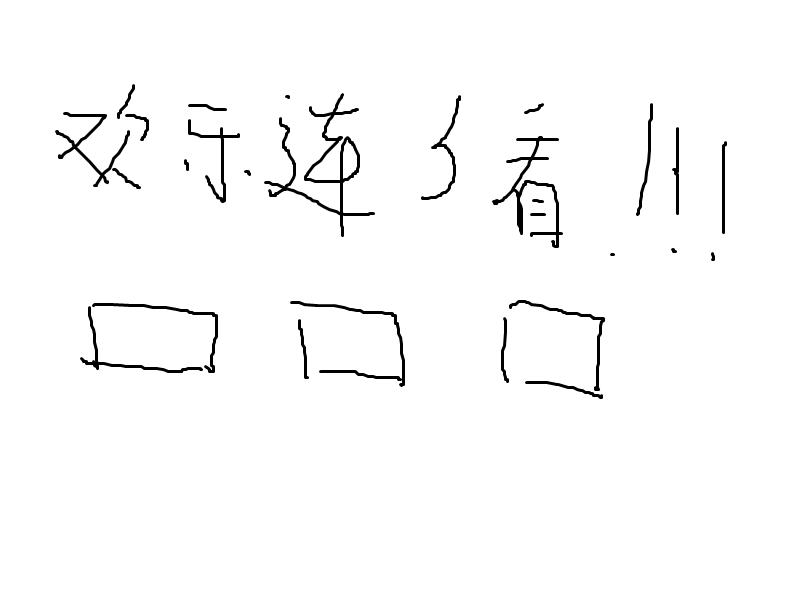 欢乐连々看!!!